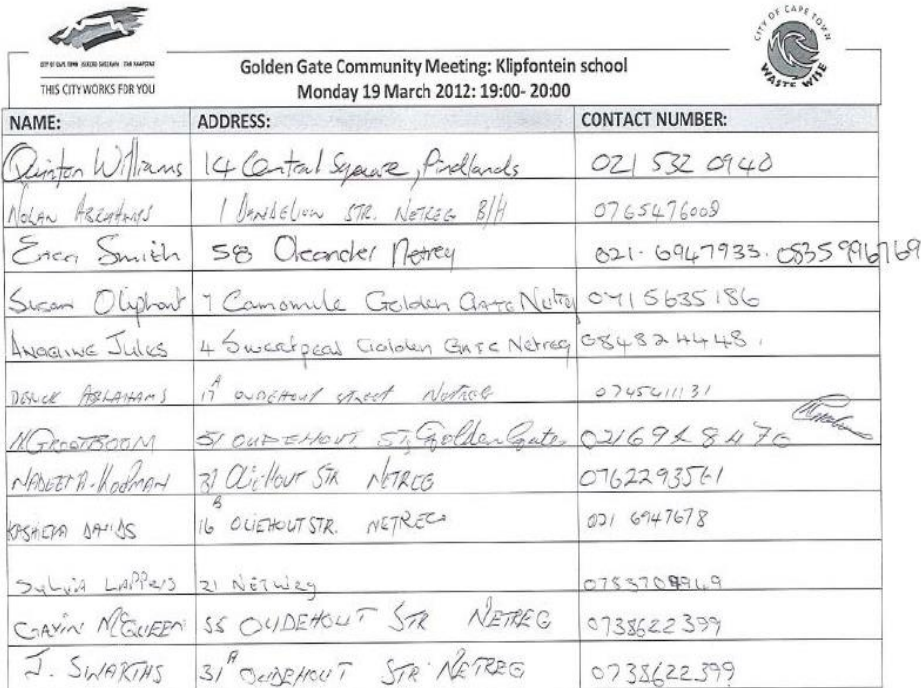 CITY OF CAPE TOWN
THIS CITY WORKS FOR YOU
CITY OF CAPE TOWN
WASTE WISE
Golden Gate Community Meeting: Klipfontein school
Monday 19 March 2012: 19:00- 20:00
NAME: ADDRESS: CONTACT NUMBER:
Quinton Williams 14 Central Square, Pinelands 021 532 0940
NOLAN ABRAHAMS 1 DANDELION STR. NETREG B/H 0765476008
Erica Smith 58 Oleander Netreg 021. 6947933. 0835996169
Susan Oliphant 7 Camomile Golden Gate Netreg 0715635186
ANGELINE Jules 4 Sweetpeas Golden Gate Netreg 084824448.
ABRAHAMS 17 A OUDEHOUT street Netreg 0745411131
M GROOTBOOM 51 OUDEHOUT St, Golden Gate 0216948476
NADEEMA-Kodman 31 OLIEHOUT STR NETREG 0762293561
DAVIDS 16 B OLIEHOUT STR. NETREG 021 6947678
Sylvia LAPPERS 21 Netweg
GAVIN McQUEEN 55 OUDEHOUT STR NETREG 0738622399
J. SWARTHS 31 A OUDEHOUT STR NETREG 0738622399